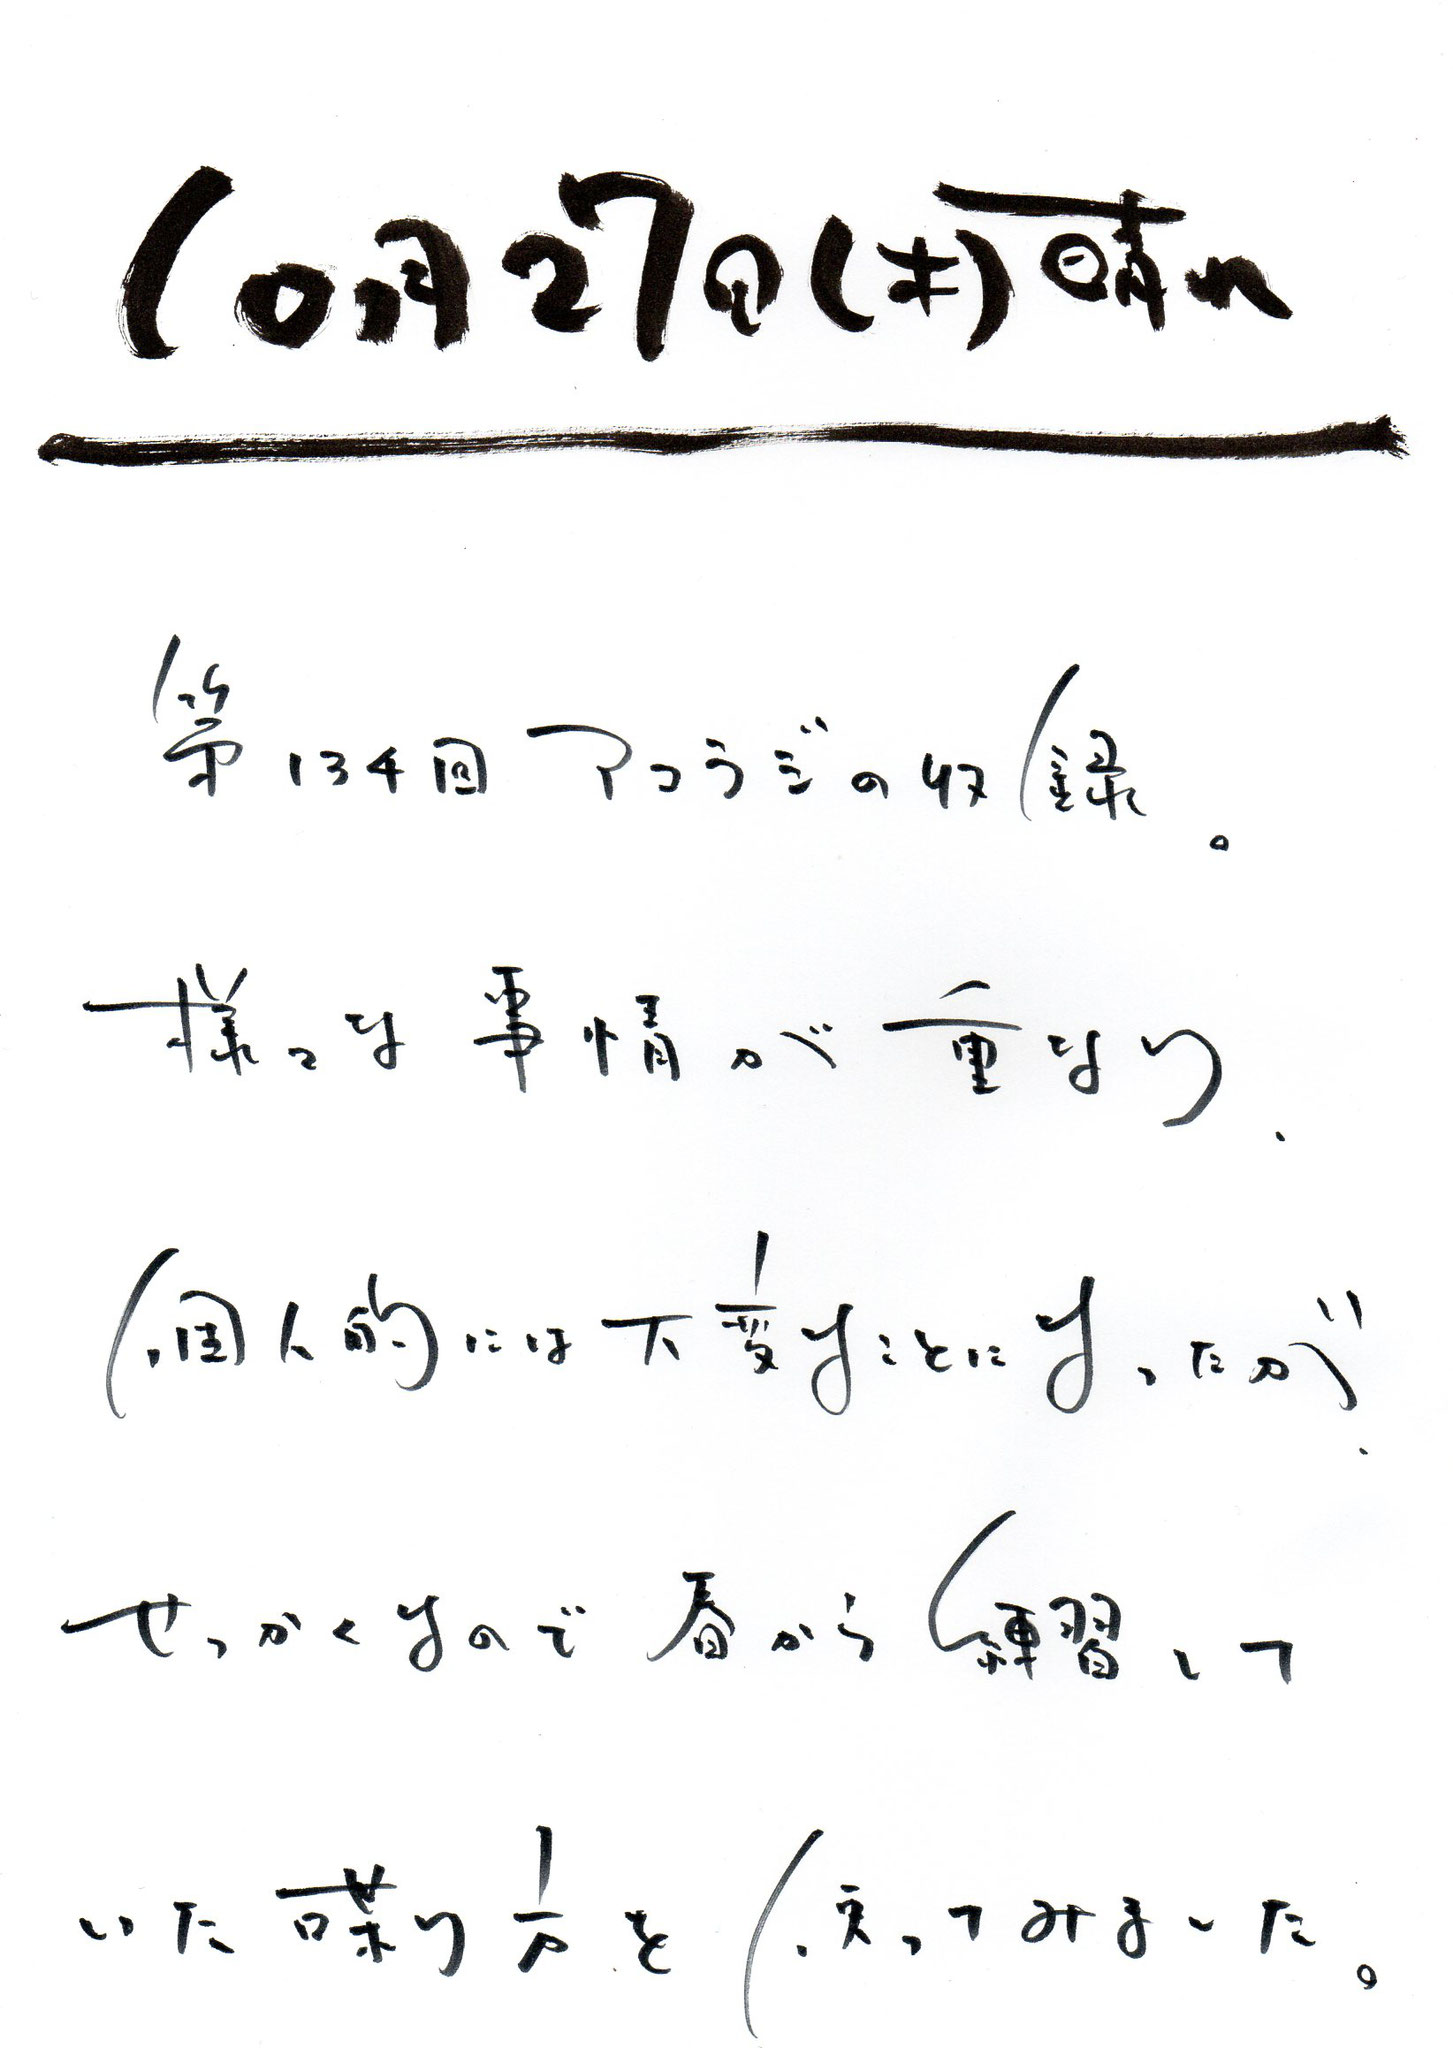 10月27日(木)晴れ
第134回アコラジの収録。
様々な事情が重なり、
個人的には大変なことになったが、
せっかくなので春から練習して
いた喋り方を使ってみました。